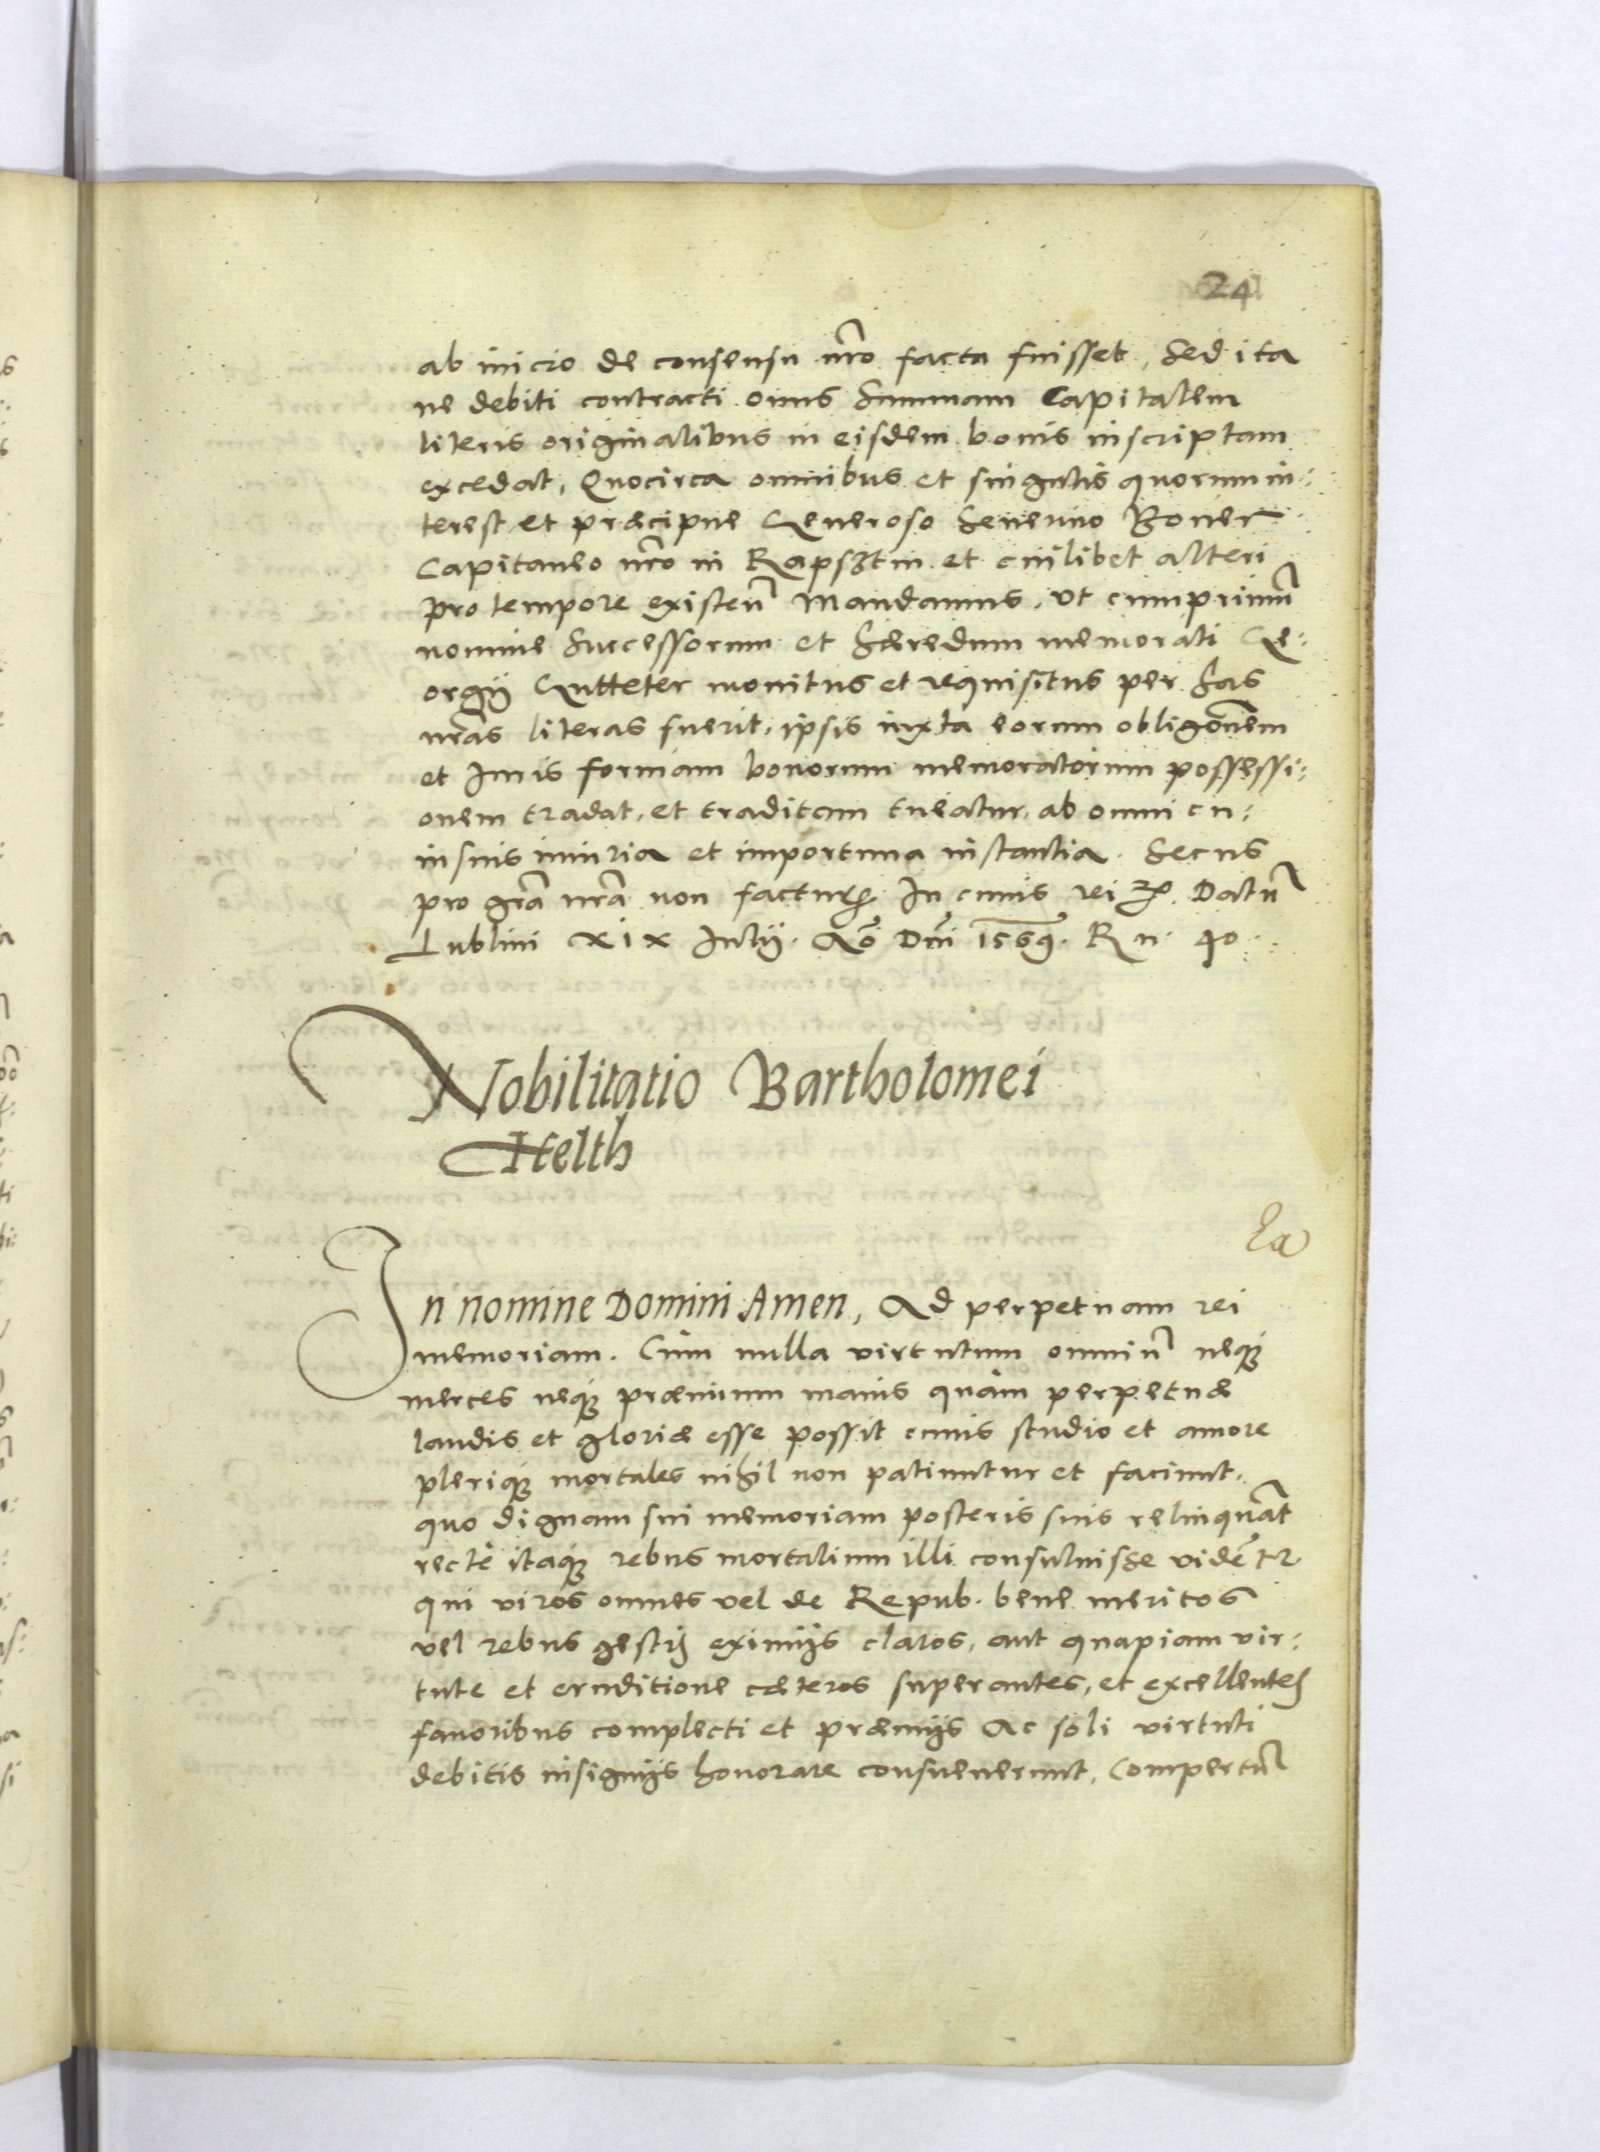 24
ab inicio de consensu nr̃o facta fuisset, Sed ita
ne debiti contracti onus Summam Capitalem
literis originalibus in eisdem bonis inscriptam
excedat, Quocirca omnibus et singulis quorum in:
terest et præcipue Generoso Seuerino Boner
Capitaneo nr̃o in Rapsztin et cuilibet alteri
pro tempore existeñ Mandamus, Ut cumprimũ
nomine Successorum et Hæredum memorati Ge:
orgij Gutteter monitus et requisitus per has
nr̃as literas fuerit, ipsis iuxta eorum obligõnem
et Juris formam bonorum memoratorum possessi:
onem tradat, et traditam tueatur, ab omni cu:
iusuis iniuria et importuna instantia. Secus
pro grã nrã non factur. In cuius rei Datũ
Lublini XIX Julij. Aõ Dñi 1569. R n. 40.
Nobilitatio Bartholomei
Helth
Ea
In nomine Domini Amen, Ad perpetuam rei
memoriam. Cùm nulla virtutum omniũ neq̃
merces neq̃ præmium maius quàm perpetuæ
laudis et gloriæ esse possit cuius studio et amore
pleriq̃ mortales nihil non patiuntur et faciunt,
quo dignam sui memoriam posteris suis relinquãt
rectè itaq̃ rebus mortalium illi consuluisse vidẽtr
qui viros omnes vel de Repub. bene meritos
vel rebus gestis eximijs claros, aut quapiam vir:
tute et eruditione cæteros superantes, et excellentes
fauoribus complecti et præmijs Ac soli virtuti
debitis insignijs honorare consueuerunt, Compertũ